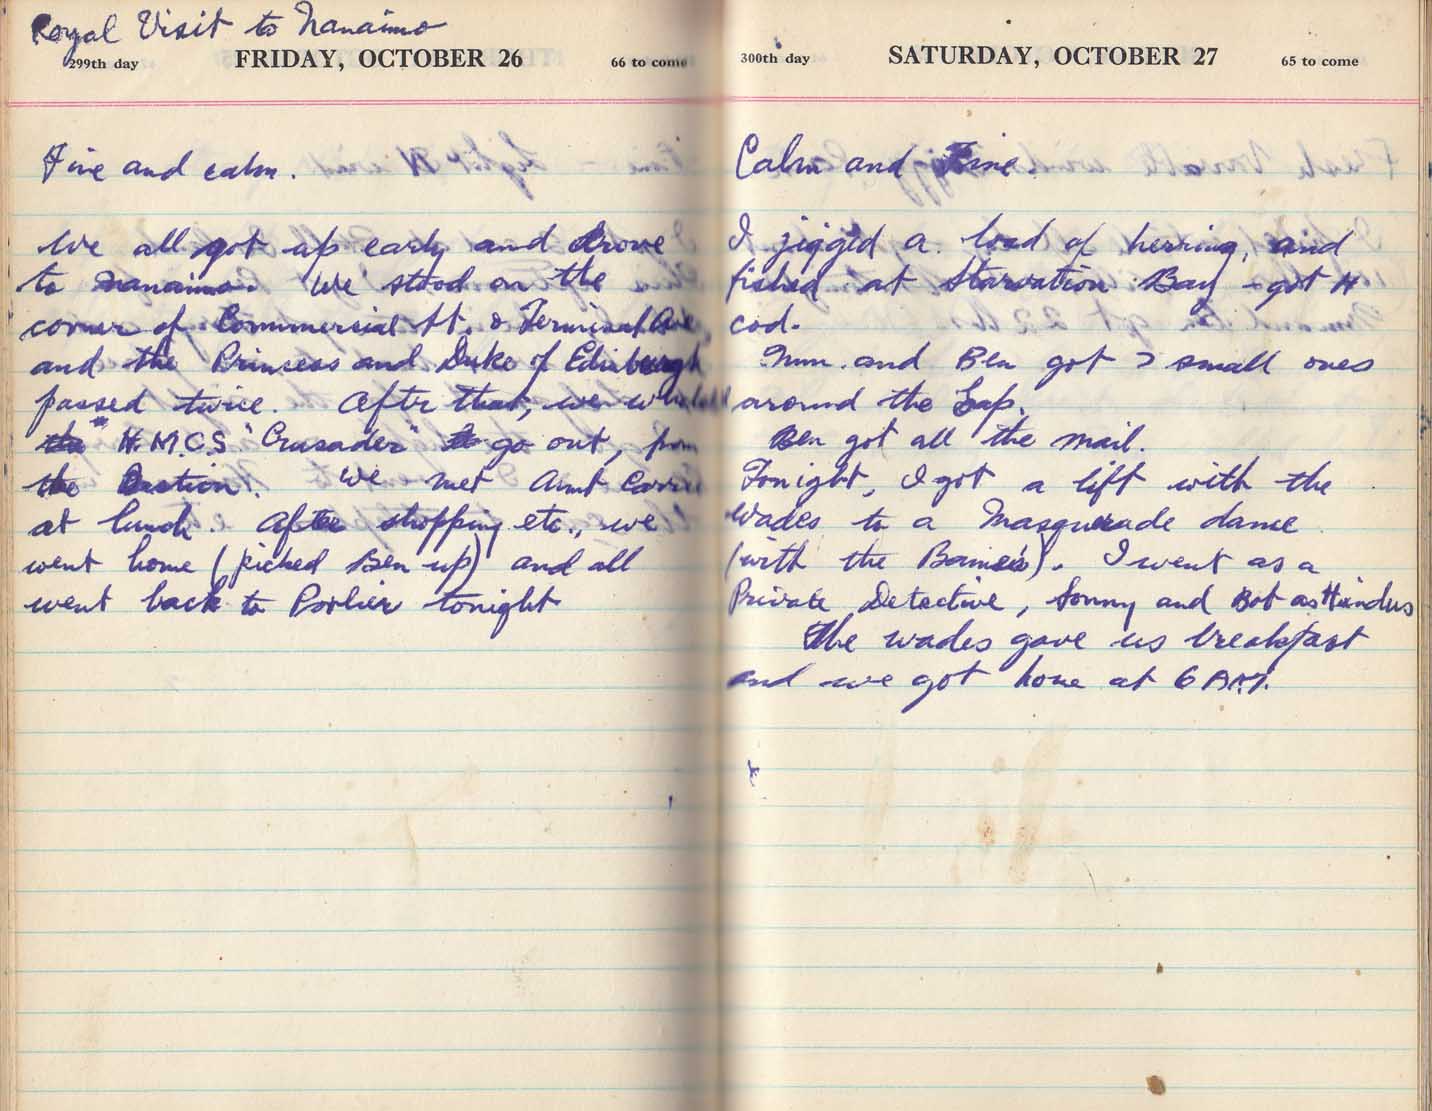 Royal Visit to Nanaimo
299th day FRIDAY, OCTOBER 26 66 to come
Fine and calm.
We all got up early and drove
to Nanaimo. We stood on the
corner of Commercial St. & Terminal Ave
and the Princess and Duke of Edinburgh
passed twice. After that, we
H.M.C.S "Crusader" go out, from
the Bastion. We met Aunt Carrie
at lunch. After shopping etc., we
went home (picked Ben up) and all
went back to Porlier tonight
300th day SATURDAY, OCTOBER 27 65 to come
Calm and Fine
I jigg'd a load of herring, and
fished at Starvation Bay - got 4
cod.
Mum and Ben got 7 small ones
around the Gap.
Ben got all the mail.
Tonight, I got a lift with the
Wades to a Masquerade dance
(with the Baines's). I went as a
Private Detective, Sonny and Bob as Hindus
The Wades gave us breakfast
and we got home at 6 A.M.